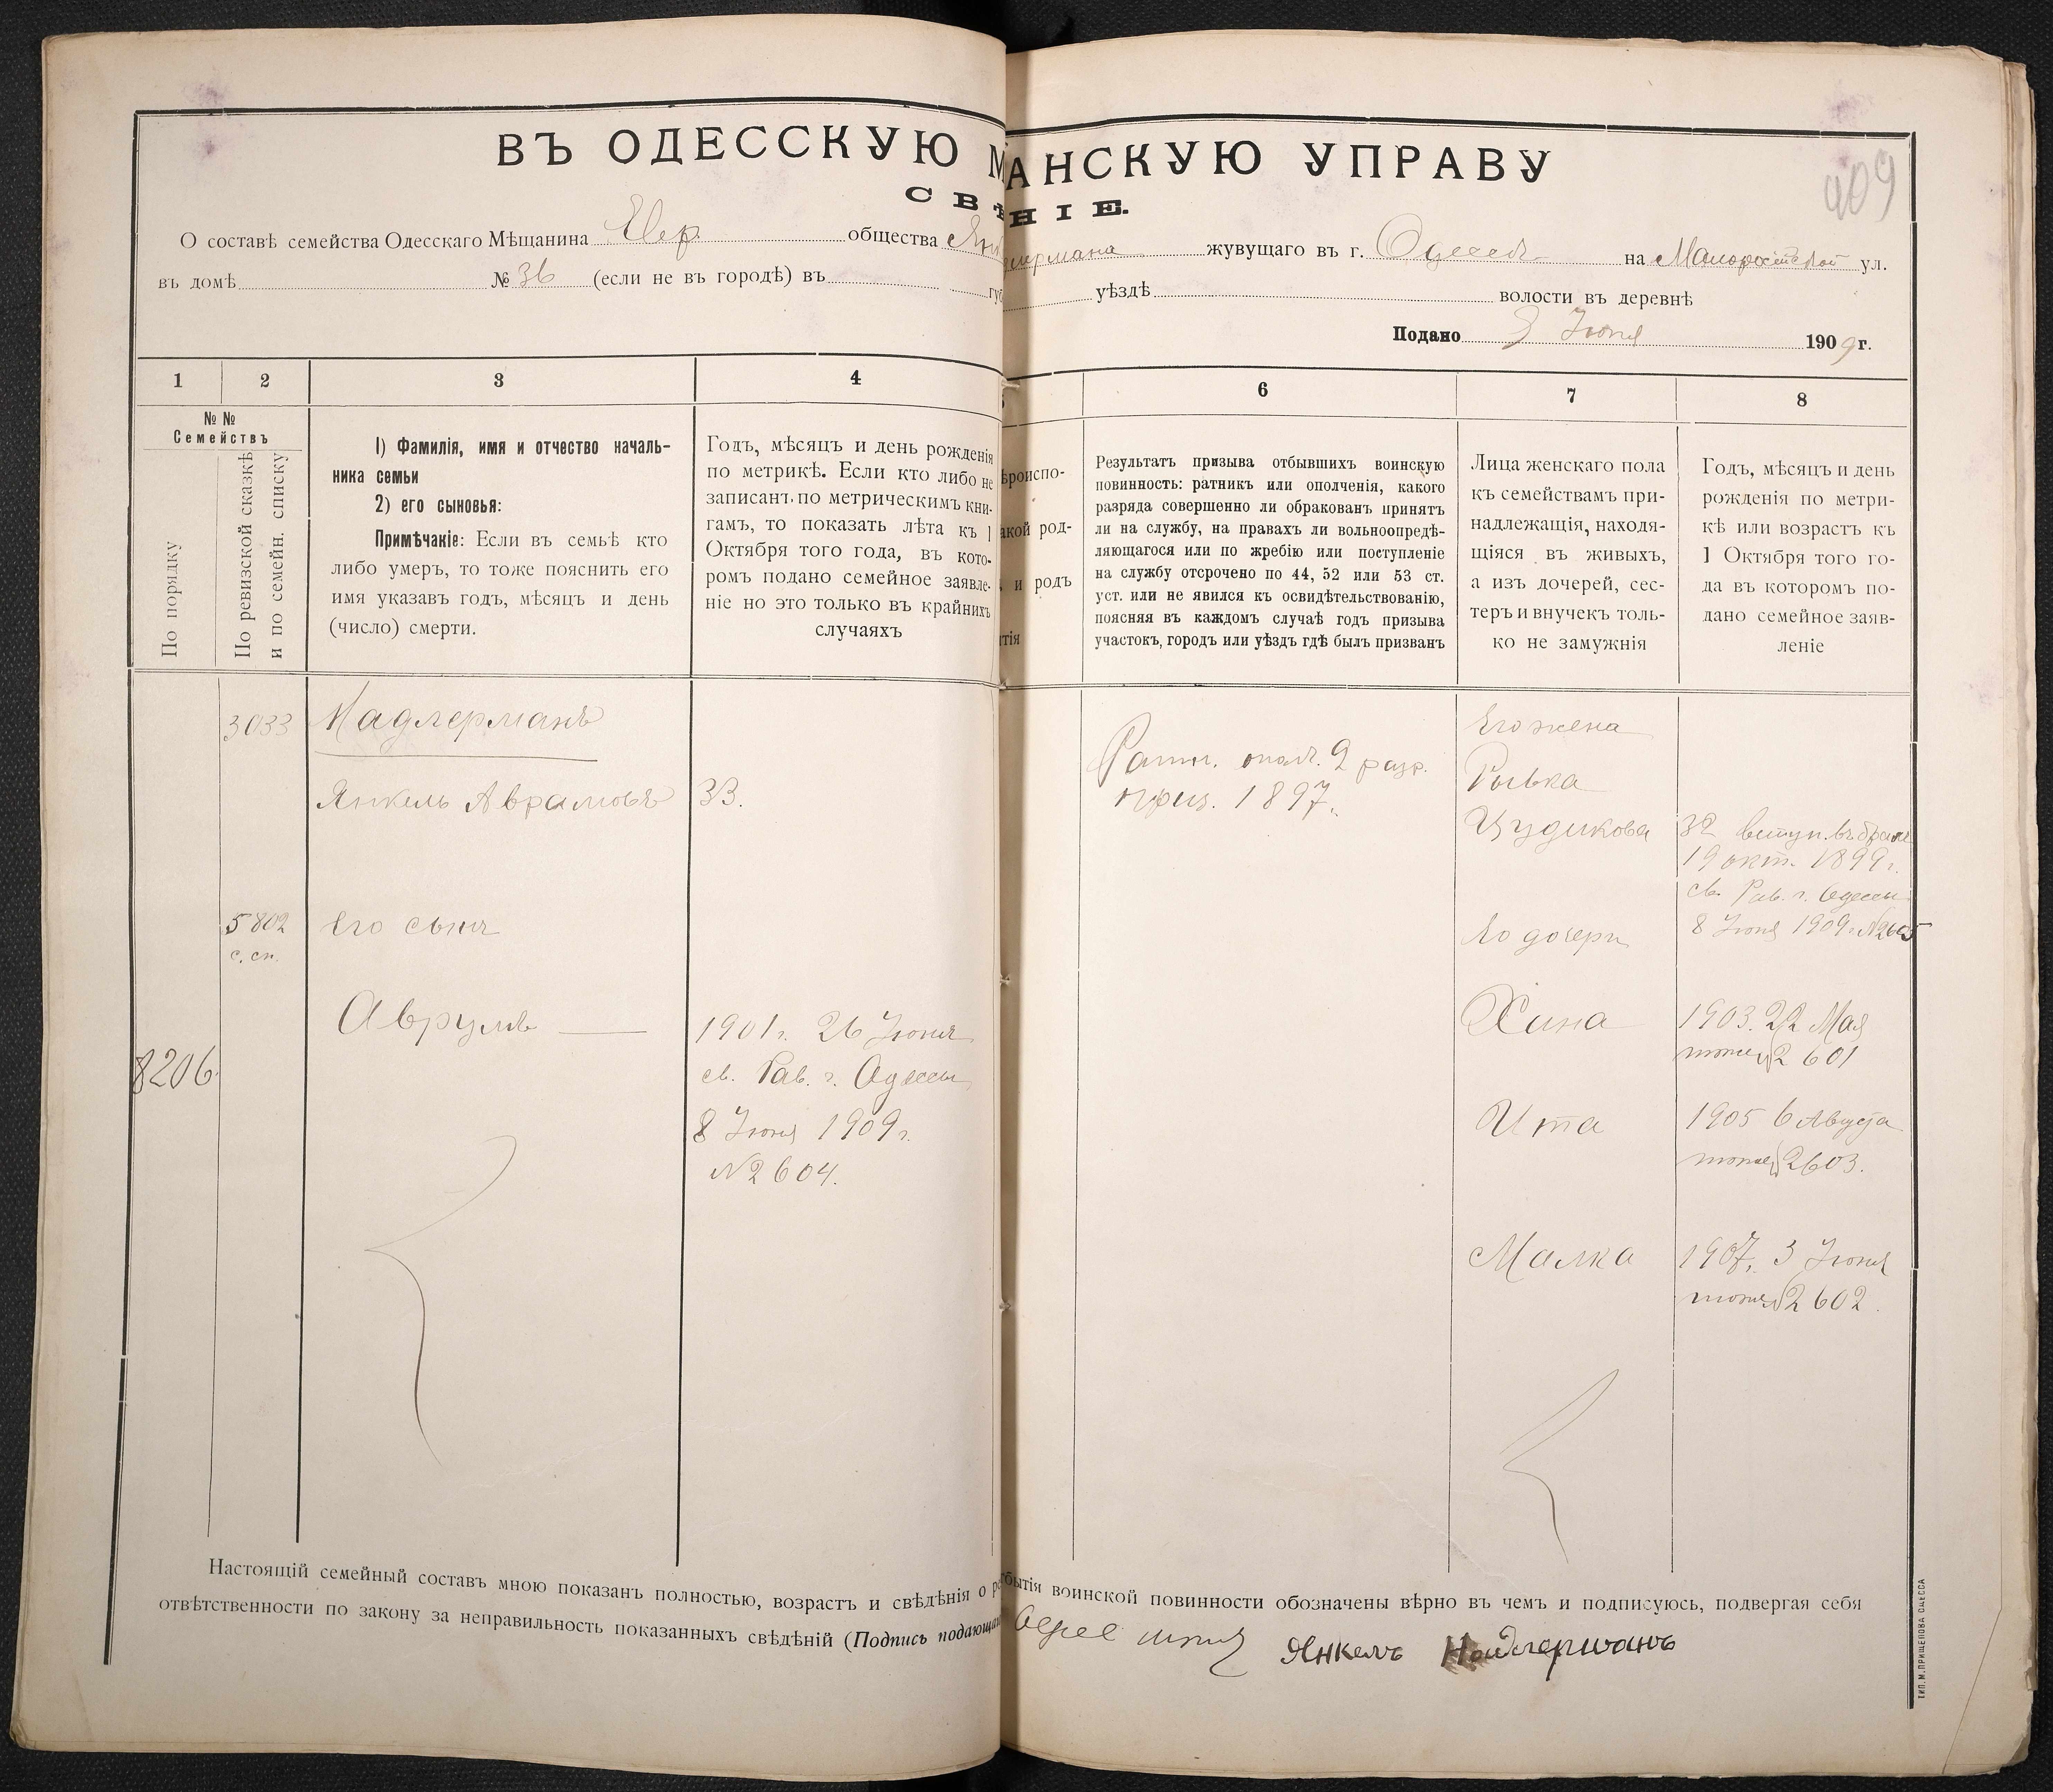 ВЪ ОДЕССКУЮ М АНСКУЮ УПРАВУ
СВѢ НІЕ.
409
О составѣ семейства Одесскаго Мѣщанина Евр. общества Янк лермана жувущаго въ г. Одессѣ на Малороссійской ул.
въ домѣ № 36 (если не въ городѣ) въ губ уѣздѣ волости въ деревнѣ
Подано 9 Іюня 1909 г.
1 2 3 4 5 6 7 8
№ №
Семействъ
По порядку
По ревизской сказкѣ
и по семейн. списку
1) Фамилія, имя и отчество началь-
ника семьи
2) его сыновья:
Примѣчакіе: Если въ семьѣ кто
либо умеръ, то тоже пояснить его
имя указавъ годъ, мѣсяцъ и день
(число) смерти.
Годъ, мѣсяцъ и день рожденія
по метрикѣ. Если кто либо не
записанъ по метрическимъ кни-
гамъ, то показать лѣта къ 1
Октября того года, въ кото-
ромъ подано семейное заявле-
ніе но это только въ крайнихъ
случаяхъ
ѣроиспо-
акой род-
и родъ
тія
Результатъ призыва отбывшихъ воинскую
повинность: ратникъ или ополченія, какого
разряда совершенно ли обракованъ принятъ
ли на службу, на правахъ ли вольноопредѣ-
ляющагося или по жребію или поступленіе
на службу отсрочено по 44, 52 или 53 ст.
уст. или не явился къ освидѣтельствованію,
поясняя въ каждомъ случаѣ годъ призыва
участокъ, городъ или уѣздъ гдѣ былъ призванъ
Лица женскаго пола
къ семействамъ при-
надлежащія, находя-
щіяся въ живыхъ,
а изъ дочерей, сес-
теръ и внучекъ толь-
ко не замужнія
Годъ, мѣсяцъ и день
рожденія по метри-
кѣ или возрастъ къ
1 Октября того го-
да въ которомъ по-
дано семейное заяв-
леніе
3033 Надлерманъ
Янкель Аврамовъ 33.
5802 Его сынъ
с. сп.
Аврумъ
1901 г. 26 Іюня
св. Рав. г. Одессы
8 Іюня 1909 г.
№ 2604.
8206
Ратн. опол. 2 разр.
приз. 1897.
Его жена
Ривка
Цудикова
32 вступ. въ бракъ
19 окт. 1899 г.
св. Рав. г. Одессы
8 Іюня 1909 г. № 2605
Его дочери
Хина 1903. 22 Мая
тоже № 2601
Ита 1905 6 Августа
тоже № 2603.
Малка 1907. 3 Іюня
тоже № 2602.
Настоящій семейный составъ мною показанъ полностью, возрастъ и свѣдѣнія о р тбытія воинской повинности обозначены вѣрно въ чемъ и подписуюсь, подвергая себя
отвѣтственности по закону за неправильность показанныхъ свѣдѣній (Подпись подающа
Янкель Надлерманъ
ТИП. М. ПРИЩЕПОВА ОДЕССА